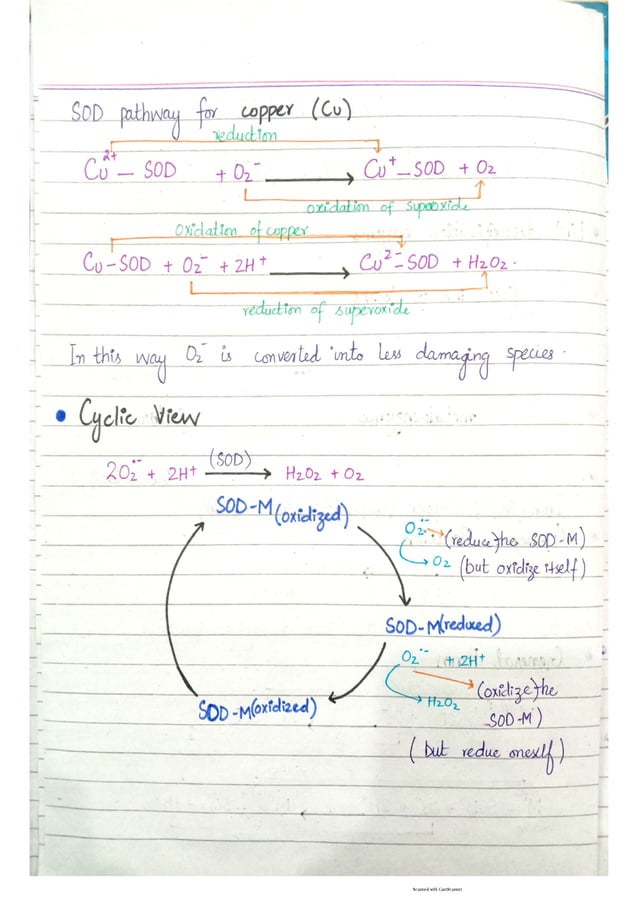 SOD pathway for copper (Cu)
reduction
Cu²⁺ — SOD + O₂⁻ ⟶ Cu⁺–SOD + O₂
oxidation of superoxide
Oxidation of copper
Cu–SOD + O₂⁻ + 2H⁺ ⟶ Cu²⁻–SOD + H₂O₂.
reduction of superoxide
In this way O₂⁻ is converted into less damaging species.
• Cyclic View
(SOD)
2O₂•⁻ + 2H⁺ ⟶ H₂O₂ + O₂
SOD-M (oxidized)
O₂•⁻ → (reduce the SOD-M)
O₂ (but oxidize itself)
SOD-M (reduced)
O₂•⁻ + 2H⁺
(oxidize the
H₂O₂
SOD-M)
SOD-M (oxidized)
(but redue oneself)
Scanned with CamScanner